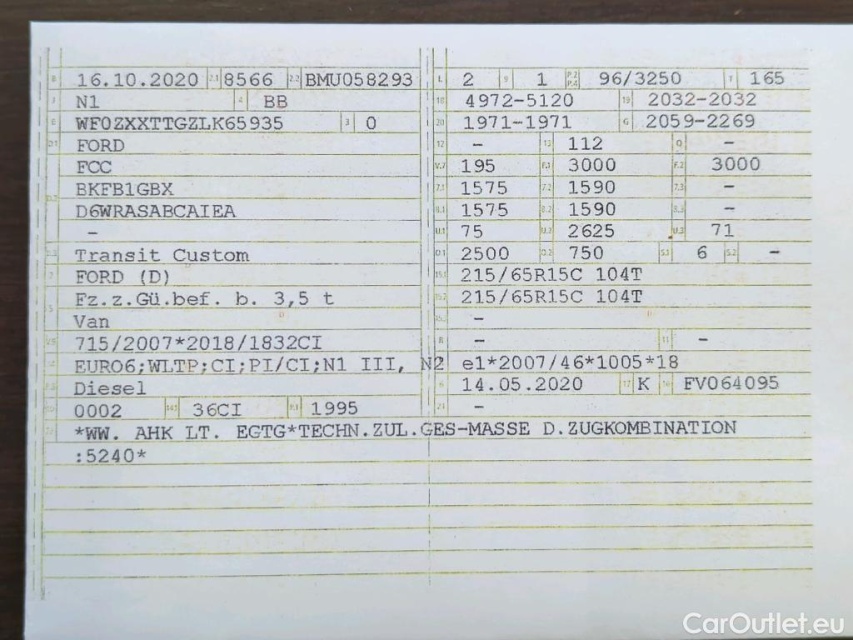 B 16.10.2020 2.1 8566 2.2 BMU058293 L 2 9 1 P.2 P.4 96/3250 T 165
J N1 4 BB 18 4972-5120 19 2032-2032
E WF0ZXXTTGZLK65935 3 0 20 1971-1971 G 2059-2269
D.1 FORD 12 - 13 112 Q -
FCC V.7 195 F.1 3000 F.2 3000
D.2 BKFB1GBX 7.1 1575 7.2 1590 7.3 -
D6WRASABCAIEA 8.1 1575 8.2 1590 8.3 -
- U.1 75 U.2 2625 U.3 71
D.3 Transit Custom O.1 2500 O.2 750 S.1 6 S.2 -
2 FORD (D) 15.1 215/65R15C 104T
5 Fz.z.Gü.bef. b. 3,5 t 15.2 215/65R15C 104T
Van -
V.9 715/2007*2018/1832CI R - 11 -
14 EURO6;WLTP;CI;PI/CI;N1 III, N2 e1*2007/46*1005*18
P.3 Diesel 6 14.05.2020 17 K 16 FV064095
10 0002 14.1 36CI P.1 1995 21 -
22 *WW. AHK LT. EGTG*TECHN.ZUL.GES-MASSE D.ZUGKOMBINATION
:5240*
CarOutlet.eu